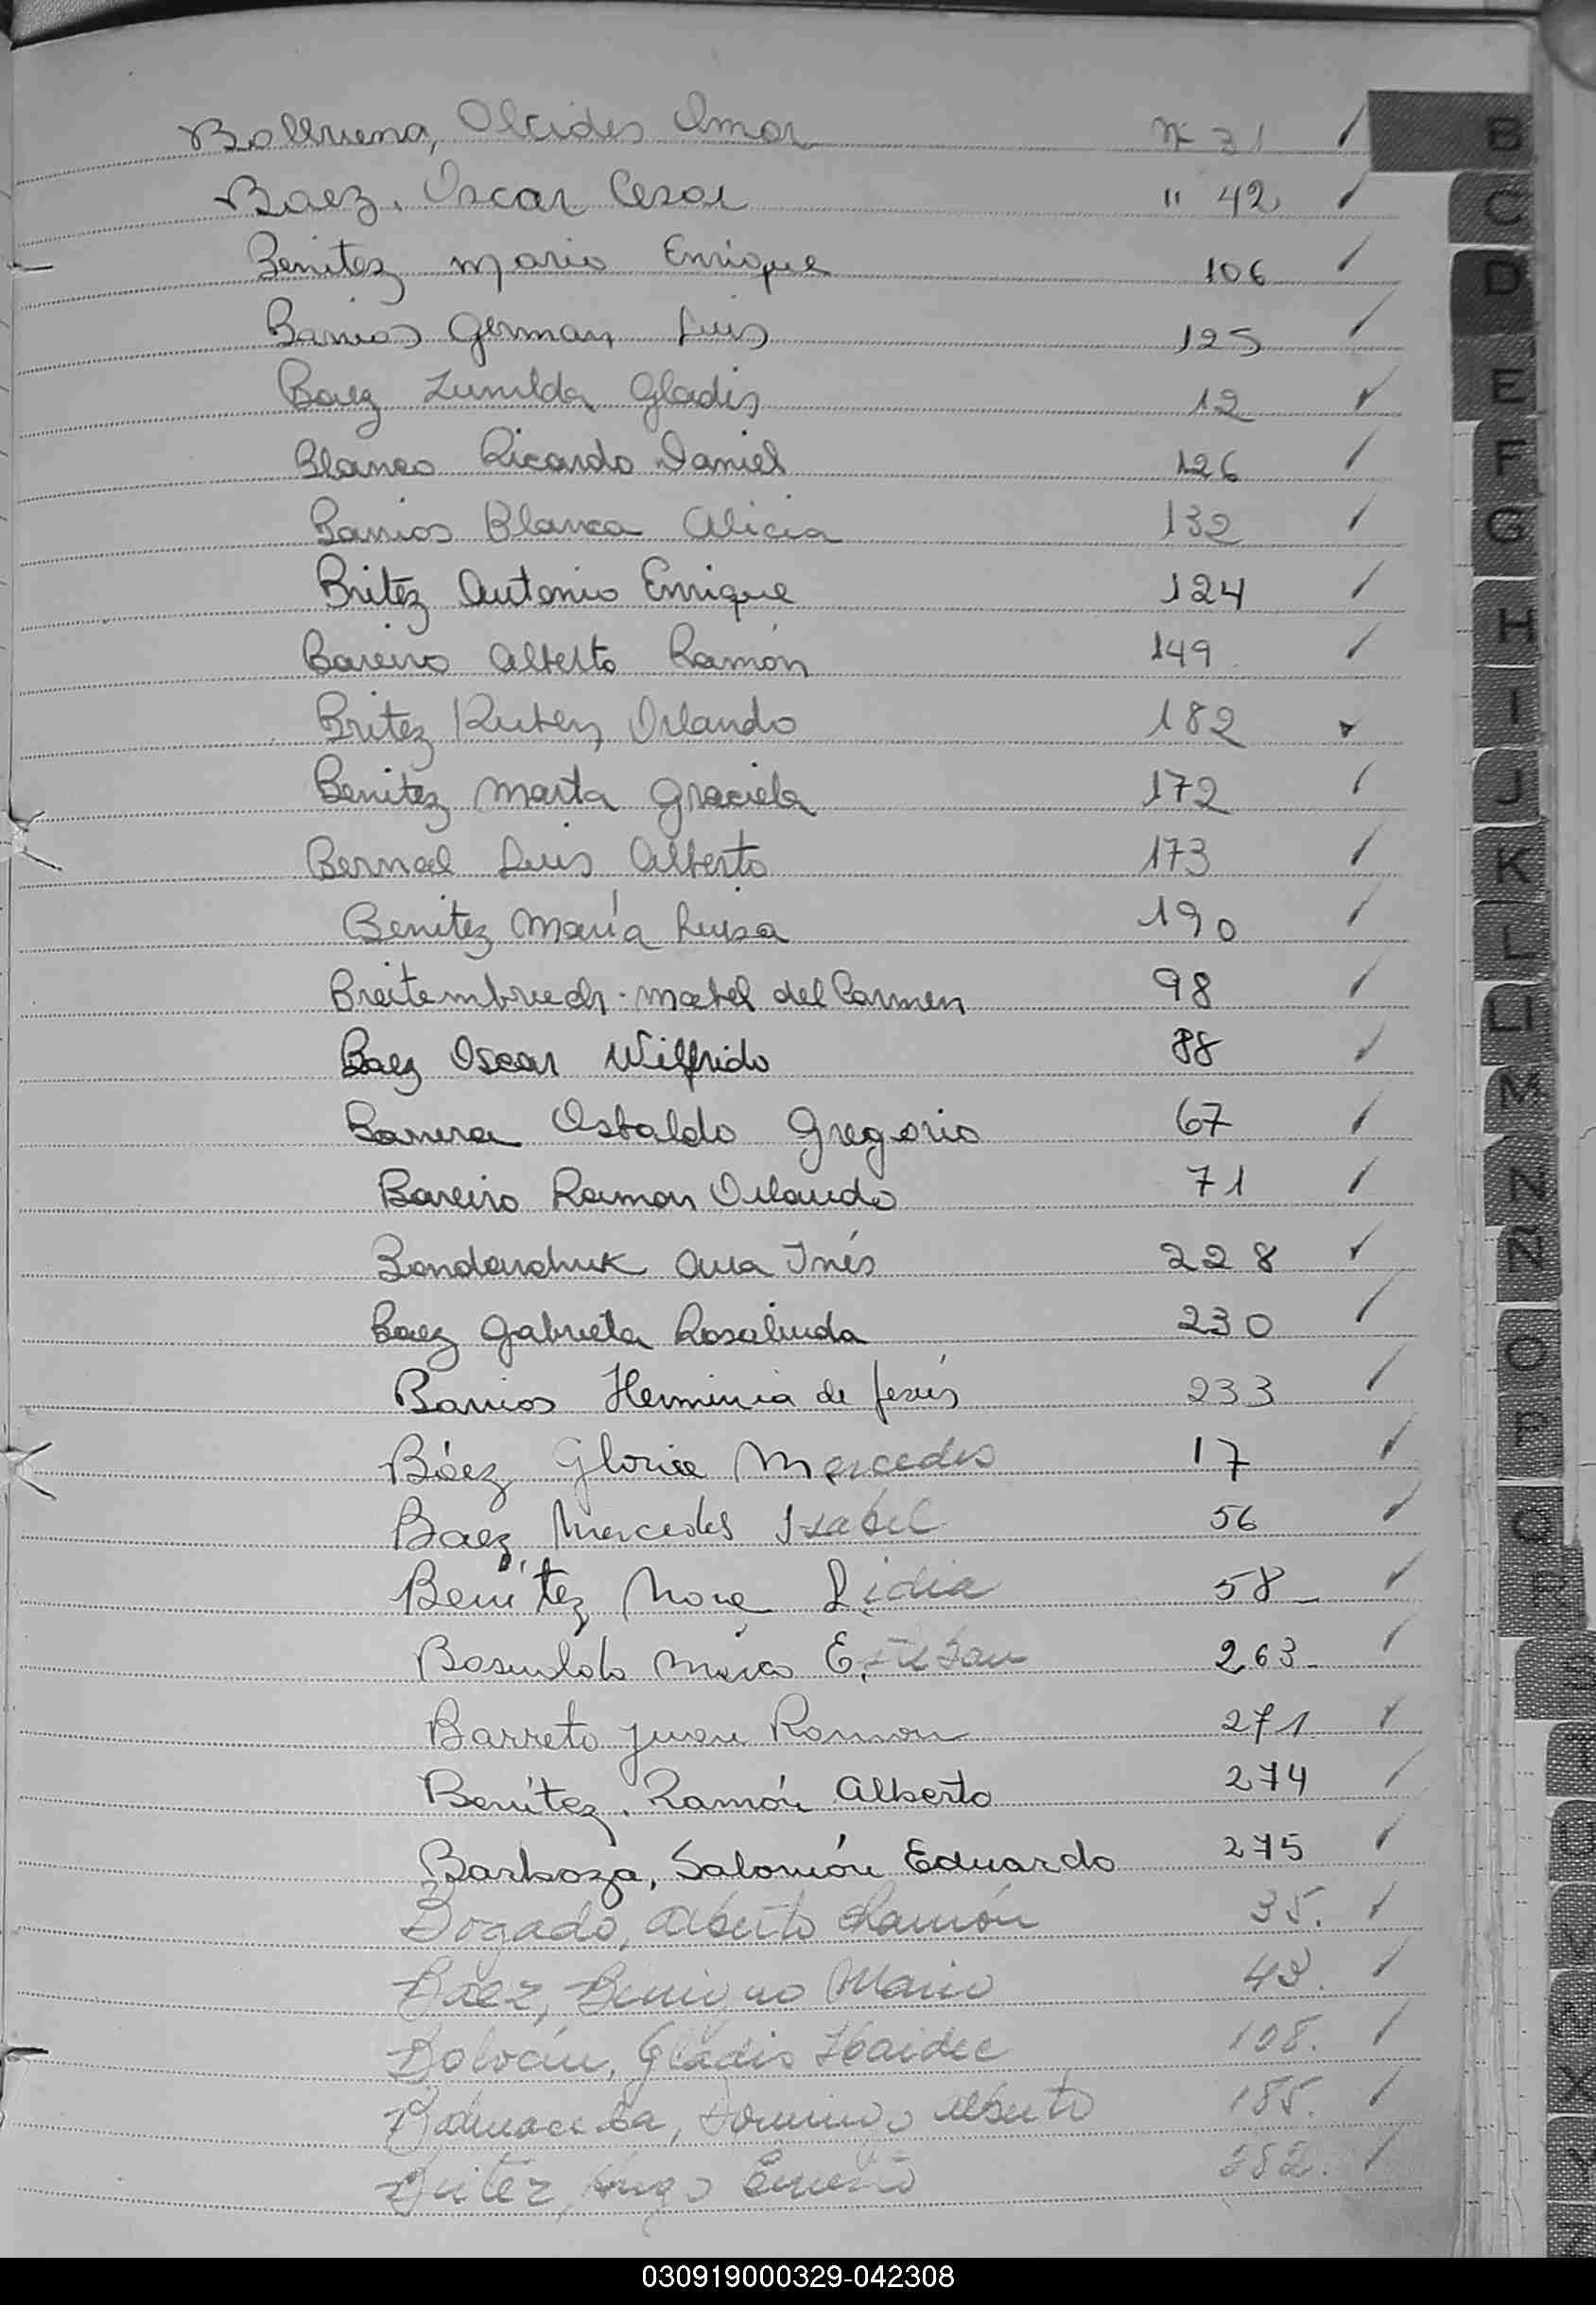 Balbuena, Alcides Omar Nº 31
Baez, Oscar Cesar " 42
Benitez Mario Enrique 106
Barrios German Luis 125
Baez Zunilda Gladis 12
Blanco Ricardo Daniel 126
Barrios Blanca Alicia 132
Britez Antonio Enrique 124
Bareiro Alberto Ramón 149
Britez Ruben Orlando 182
Benitez Marta Graciela 172
Bernal Luis Alberto 173
Benitez María Luisa 190
Breitembruch - Mabel del Carmen 98
Baez Oscar Wilfrido 88
Barrera Osbaldo Gregorio 67
Bareiro Ramon Orlando 71
Bondarchuk Ana Inés 228
Baez Gabriela Rosalinda 230
Barrios Herminia de Jesús 233
Báez Gloria Mercedes 17
Baez, Mercedes Isabel 56
Benítez Nora Lidia 58
Basualdo Mario Esteban 263
Barreto Juan Ramon 271
Benítez, Ramón Alberto 274
Barboza, Salomón Eduardo 275
Bogado, Alberto Ramón 35.
Baez, Benigno Mario 43.
Gladis Haidee 108.
Domingo Alberto 185.
Britez, Hugo Ernesto 252.
B
C
D
E
F
G
H
I
J
K
L
LL
M
N
Ñ
O
P
Q
R
030919000329-042308